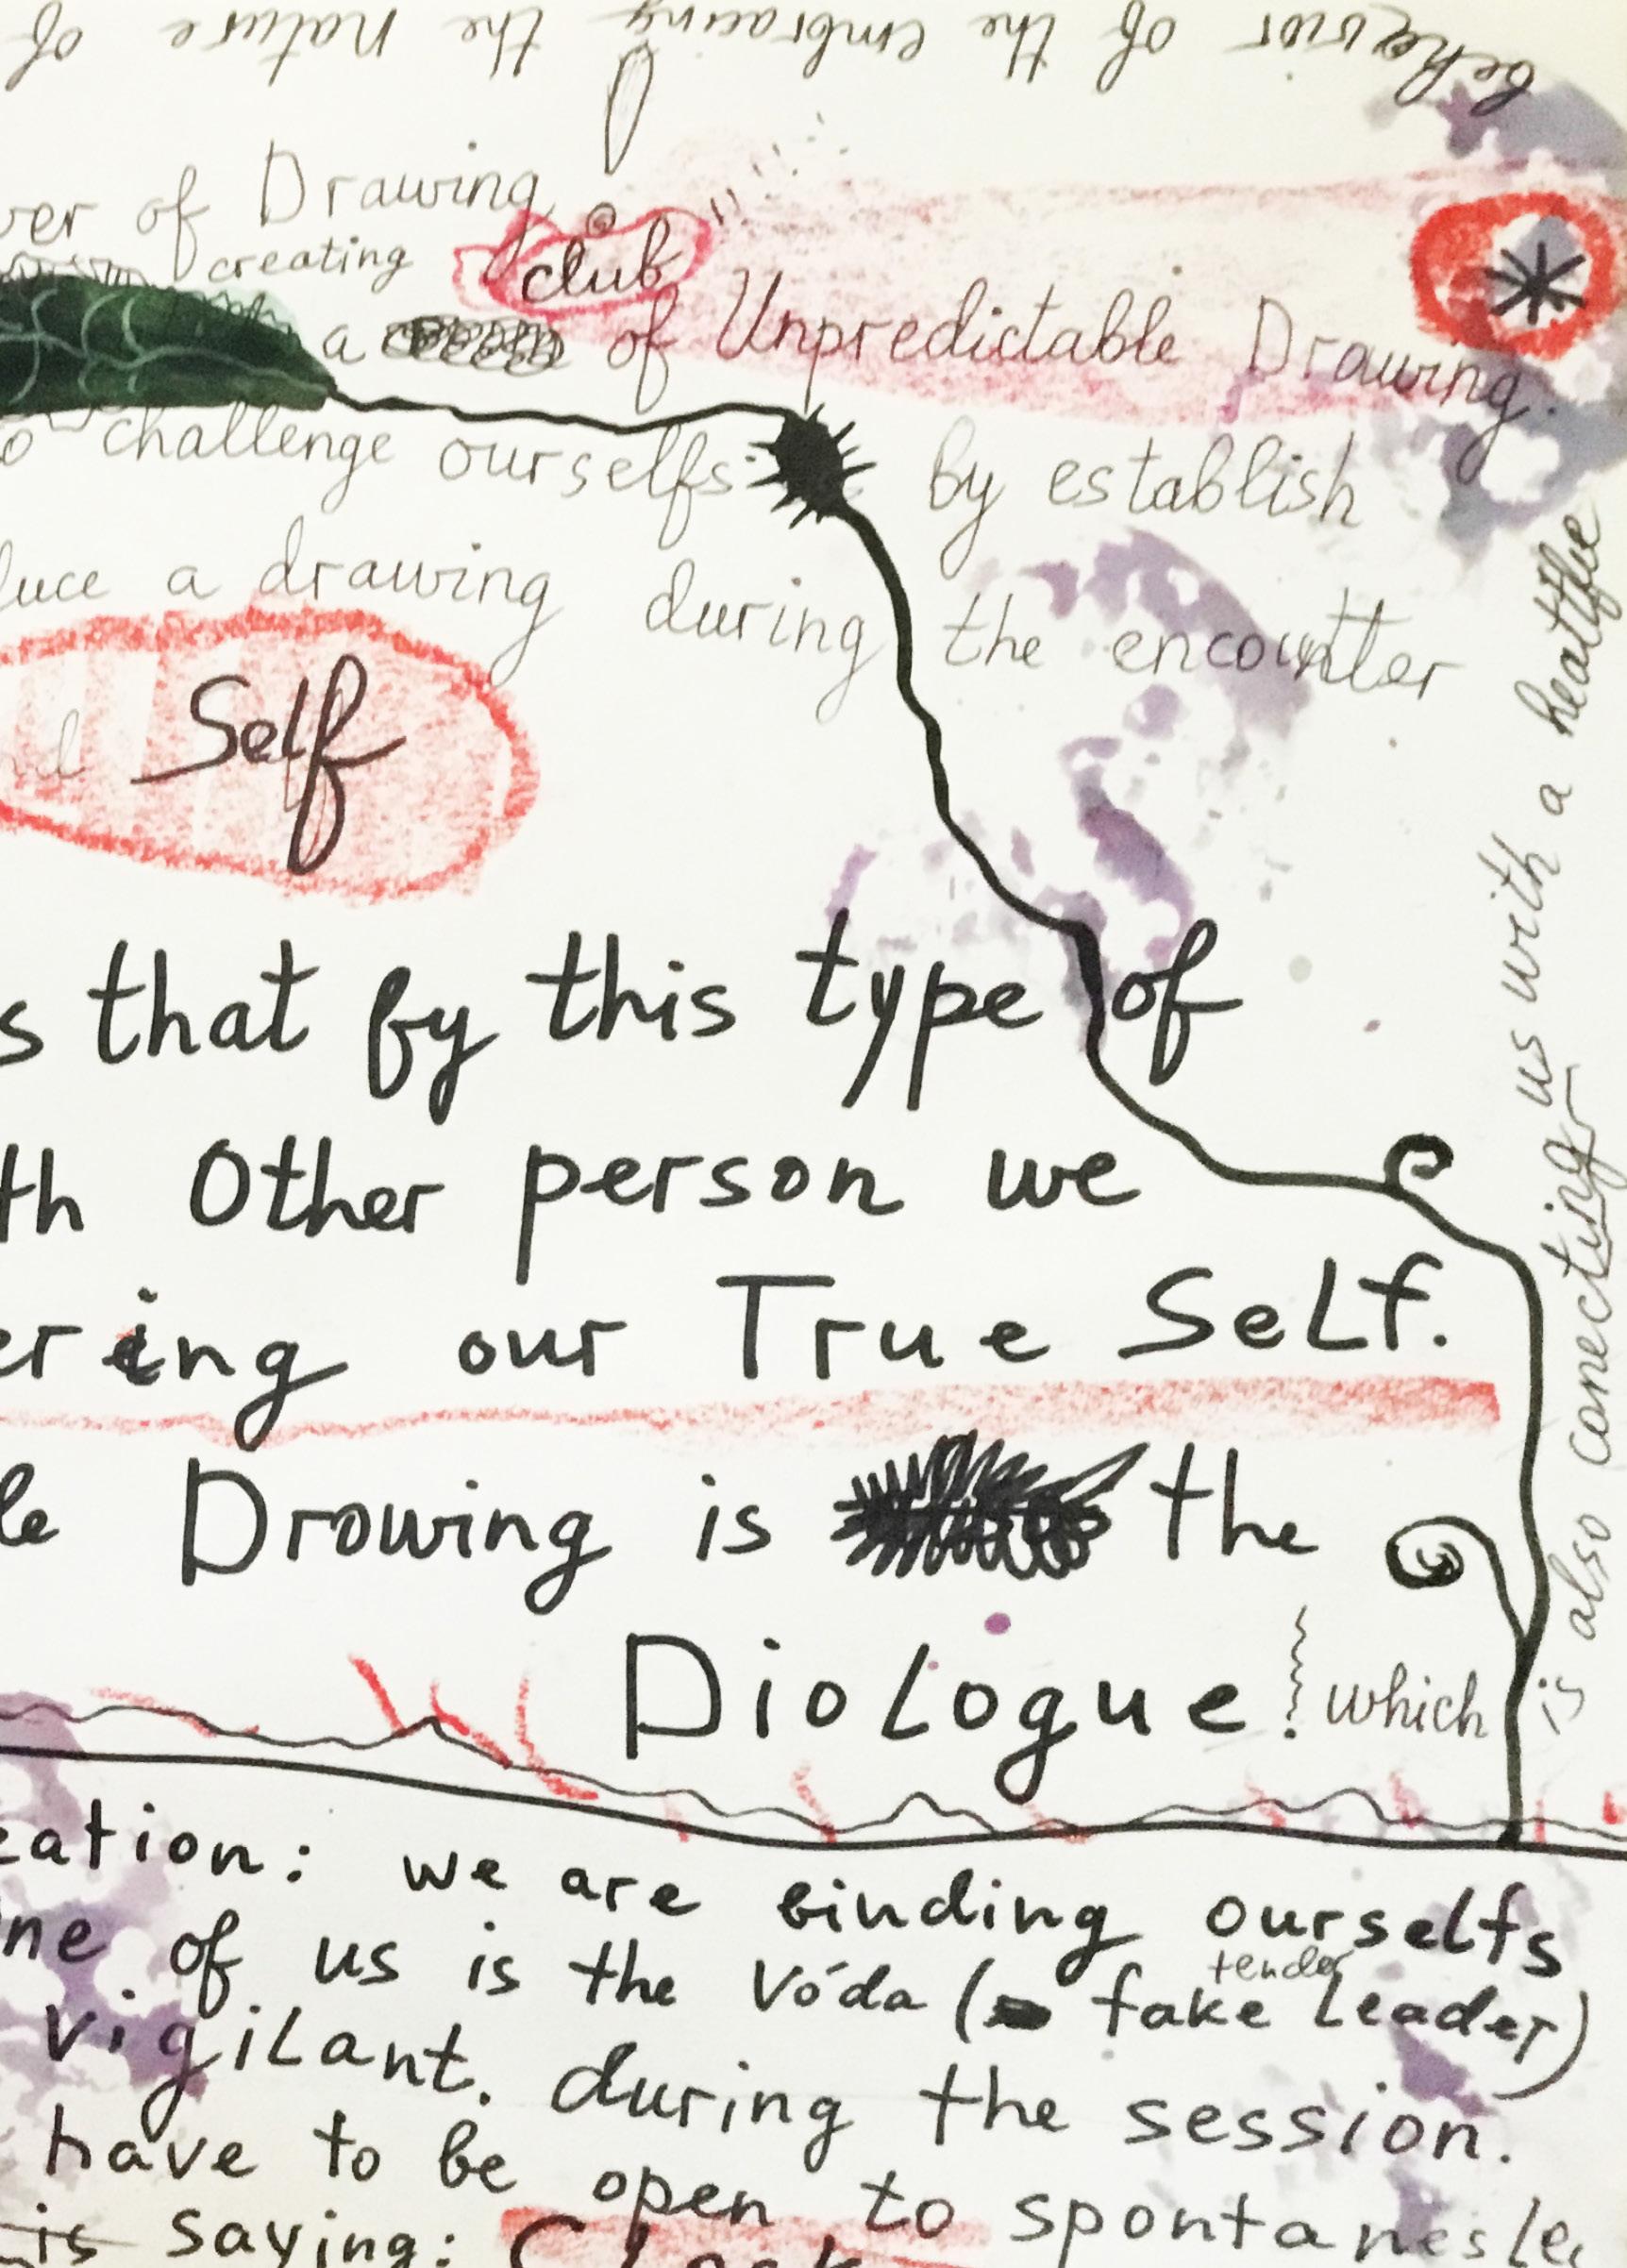 behavior of the embracing the nature of
ver of Drawing
creating club
a of Unpredictable Drawing.
o challenge ourselfs by establish
duce a drawing during the encounter
Self
s that by this type of
th Other person we
ering our True Self.
le Drowing is the
Diologue! which
is also conecting us with a
cation: we are binding ourselfs
ne of us is the Vóda (fake tender Leader)
vigilant. during the session.
have to be open to
is saying: